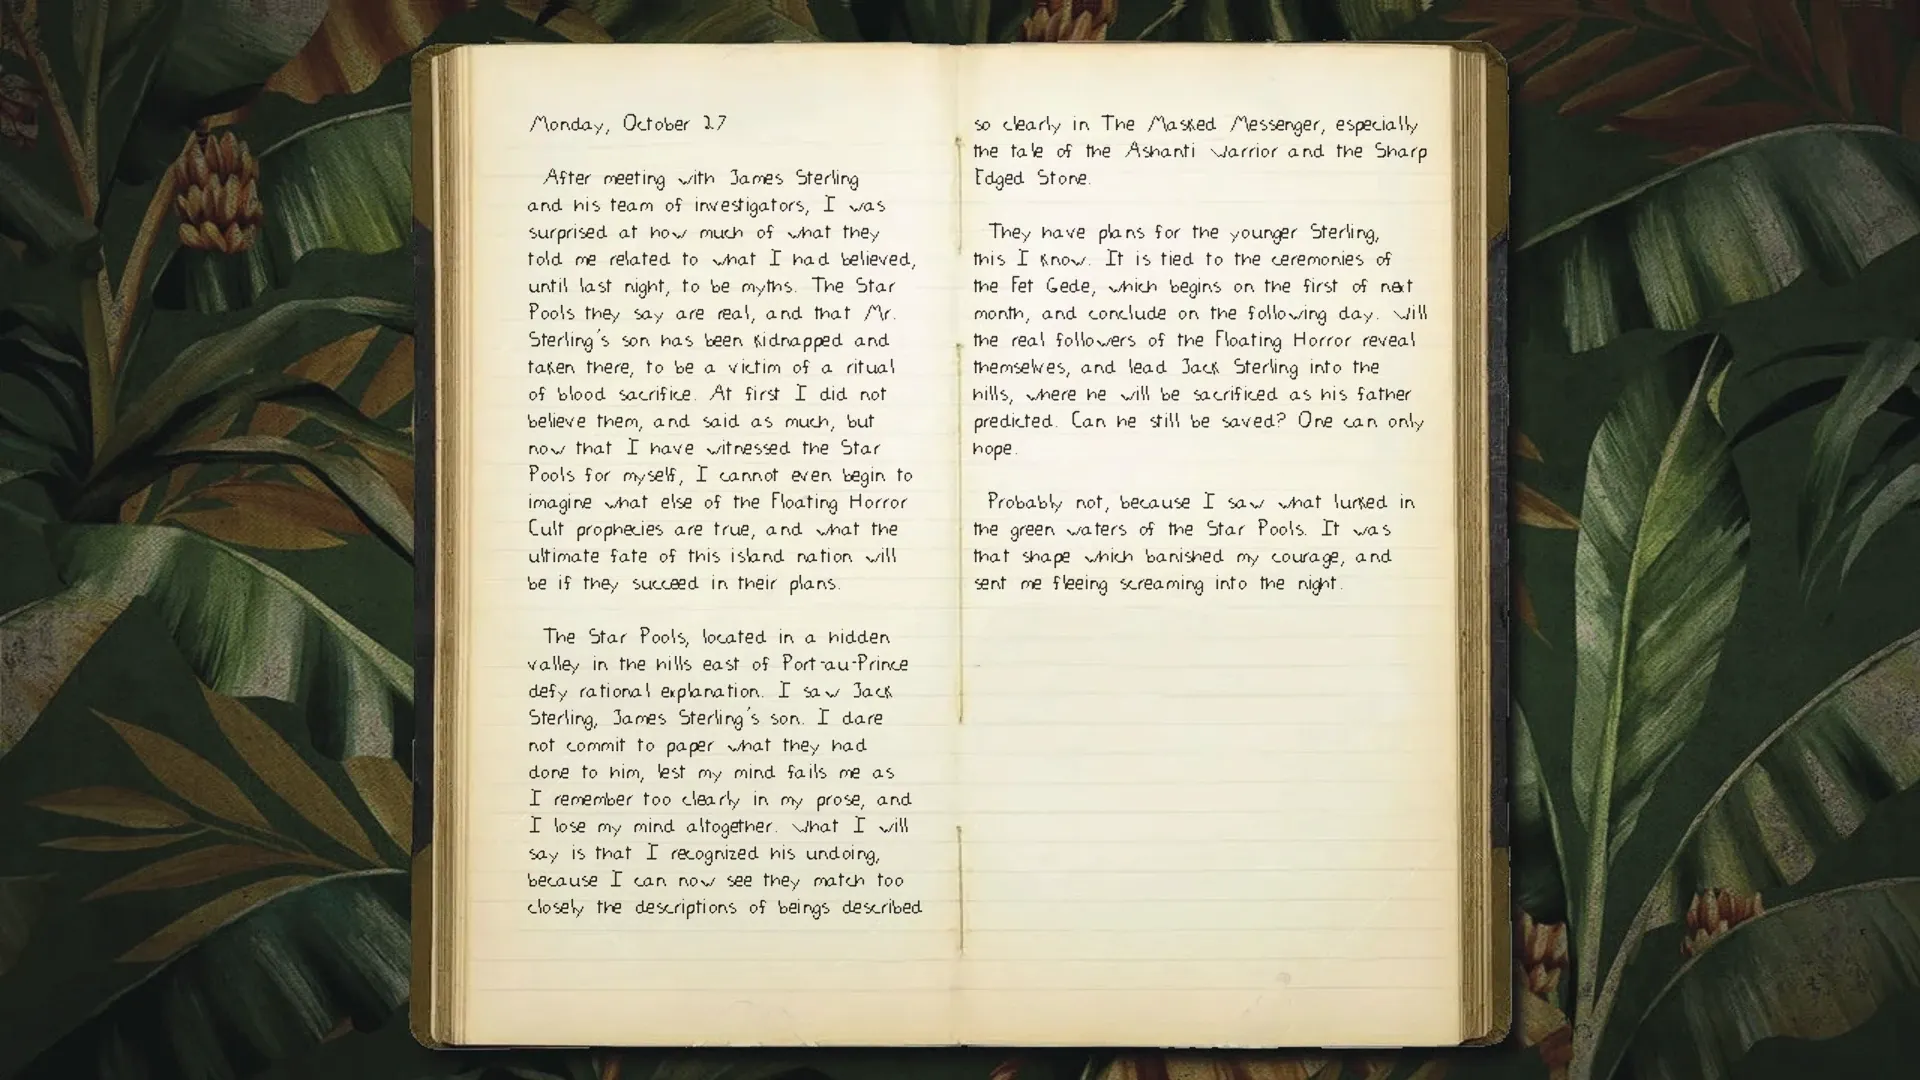 Monday, October 27
After meeting with James Sterling
and his team of investigators, I was
surprised at how much of what they
told me related to what I had believed,
until last night, to be myths. The Star
Pools they say are real, and that Mr.
Sterling's son has been kidnapped and
taken there, to be a victim of a ritual
of blood sacrifice. At first I did not
believe them, and said as much, but
now that I have witnessed the Star
Pools for myself, I cannot even begin to
imagine what else of the Floating Horror
Cult prophecies are true, and what the
ultimate fate of this island nation will
be if they succeed in their plans.
The Star Pools, located in a hidden
valley in the hills east of Port-au-Prince
defy rational explanation. I saw Jack
Sterling, James Sterling's son. I dare
not commit to paper what they had
done to him, lest my mind fails me as
I remember too clearly in my prose, and
I lose my mind altogether. What I will
say is that I recognized his undoing,
because I can now see they match too
closely the descriptions of beings described
so clearly in The Masked Messenger, especially
the tale of the Ashanti Warrior and the Sharp
Edged Stone.
They have plans for the younger Sterling,
this I know. It is tied to the ceremonies of
the Fet Gede, which begins on the first of next
month, and conclude on the following day. Will
the real followers of the Floating Horror reveal
themselves, and lead Jack Sterling into the
hills, where he will be sacrificed as his father
predicted. Can he still be saved? One can only
hope.
Probably not, because I saw what lurked in
the green waters of the Star Pools. It was
that shape which banished my courage, and
sent me fleeing screaming into the night.